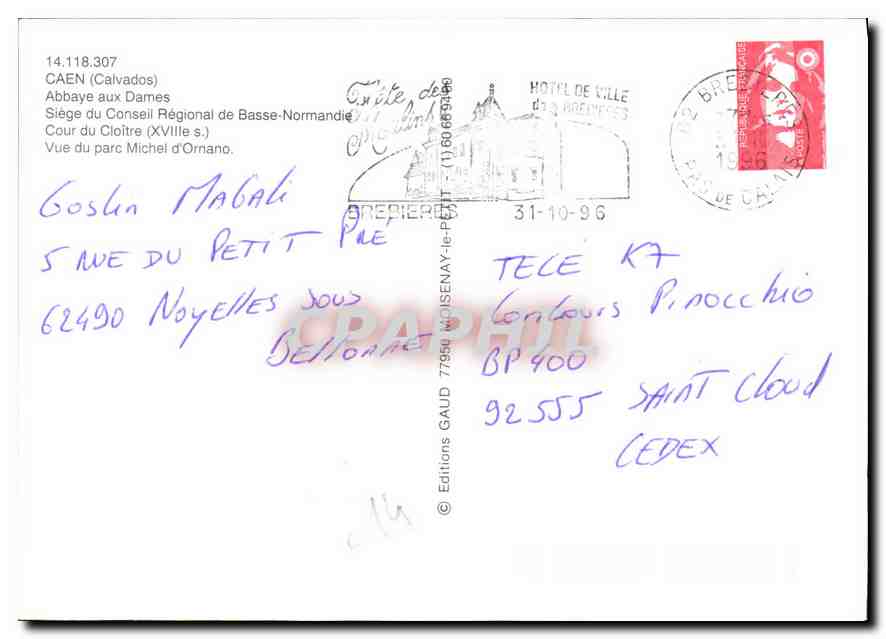 14.118.307
CAEN (Calvados)
Abbaye aux Dames
Siège du Conseil Régional de Basse-Normandie
Cour du Cloître (XVIIIe s.)
Vue du parc Michel d'Ornano.
HOTEL DE VILLE
de BREBIERES
BREBIERES 31-10-96
62 BREBIERES
1996
PAS DE CALAIS
REPUBLIQUE FRANÇAISE
POSTE
Goslin MAGALI
5 RUE DU PETIT PRÉ
62490 NOYELLES SOUS
BELLONNE
© Editions GAUD 77950 MOISENAY-le-PETIT - (1) 60 66 94 80
TELÉ K7
Concours PINOCCHIO
BP 400
92555 SAINT Cloud
CEDEX
CPAPHIL